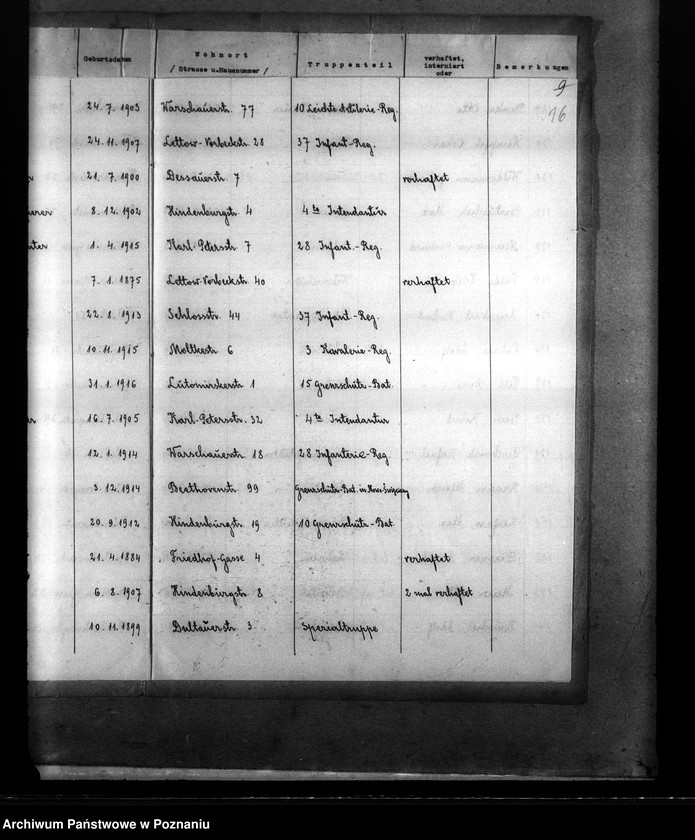 Geburtsdatum Wohnort / Strasse u.Hausnummer / Truppenteil verhaftet, interniert oder Bemerkungen
9
16
24. 7. 1903 Warschauerstr. 77 10 Leichte Artilerie-Reg.
24. 11. 1907 Lettow-Vorbeckstr. 28 37 Infant-Reg.
21. 7. 1900 Dessauerstr. 7 verhaftet
8. 12. 1902 Hindenburgstr. 4 4te Intendantur
1. 4. 1915 Karl-Petersstr. 7 28 Infant.-Reg.
7. 1. 1875 Lettow-Vorbeckstr. 40 verhaftet
22. 8. 1913 Schlosstr. 44 37 Infant-Reg.
10. 11. 1915 Moltkestr. 6 3 Kavalerie-Reg.
31. 1. 1916 Lutomirskerstr. 1 15 Grenschutz-Bat.
16. 7. 1905 Karl-Petersstr. 32 4te Intendantur
12. 1. 1914 Warschauerstr. 18 28 Infanterie-Reg.
3. 12. 1914 Beethovenstr. 99 Grenschutz-Bat. in
20. 9. 1912 Hindenburgstr. 19 10 Grenschutz-Bat.
21. 4. 1884 Friedhof-Gasse 4 verhaftet
6. 8. 1907 Hindenburgstr. 8 2 mal verhaftet
10. 11. 1899 3 Spezialtruppe
Archiwum Państwowe w Poznaniu